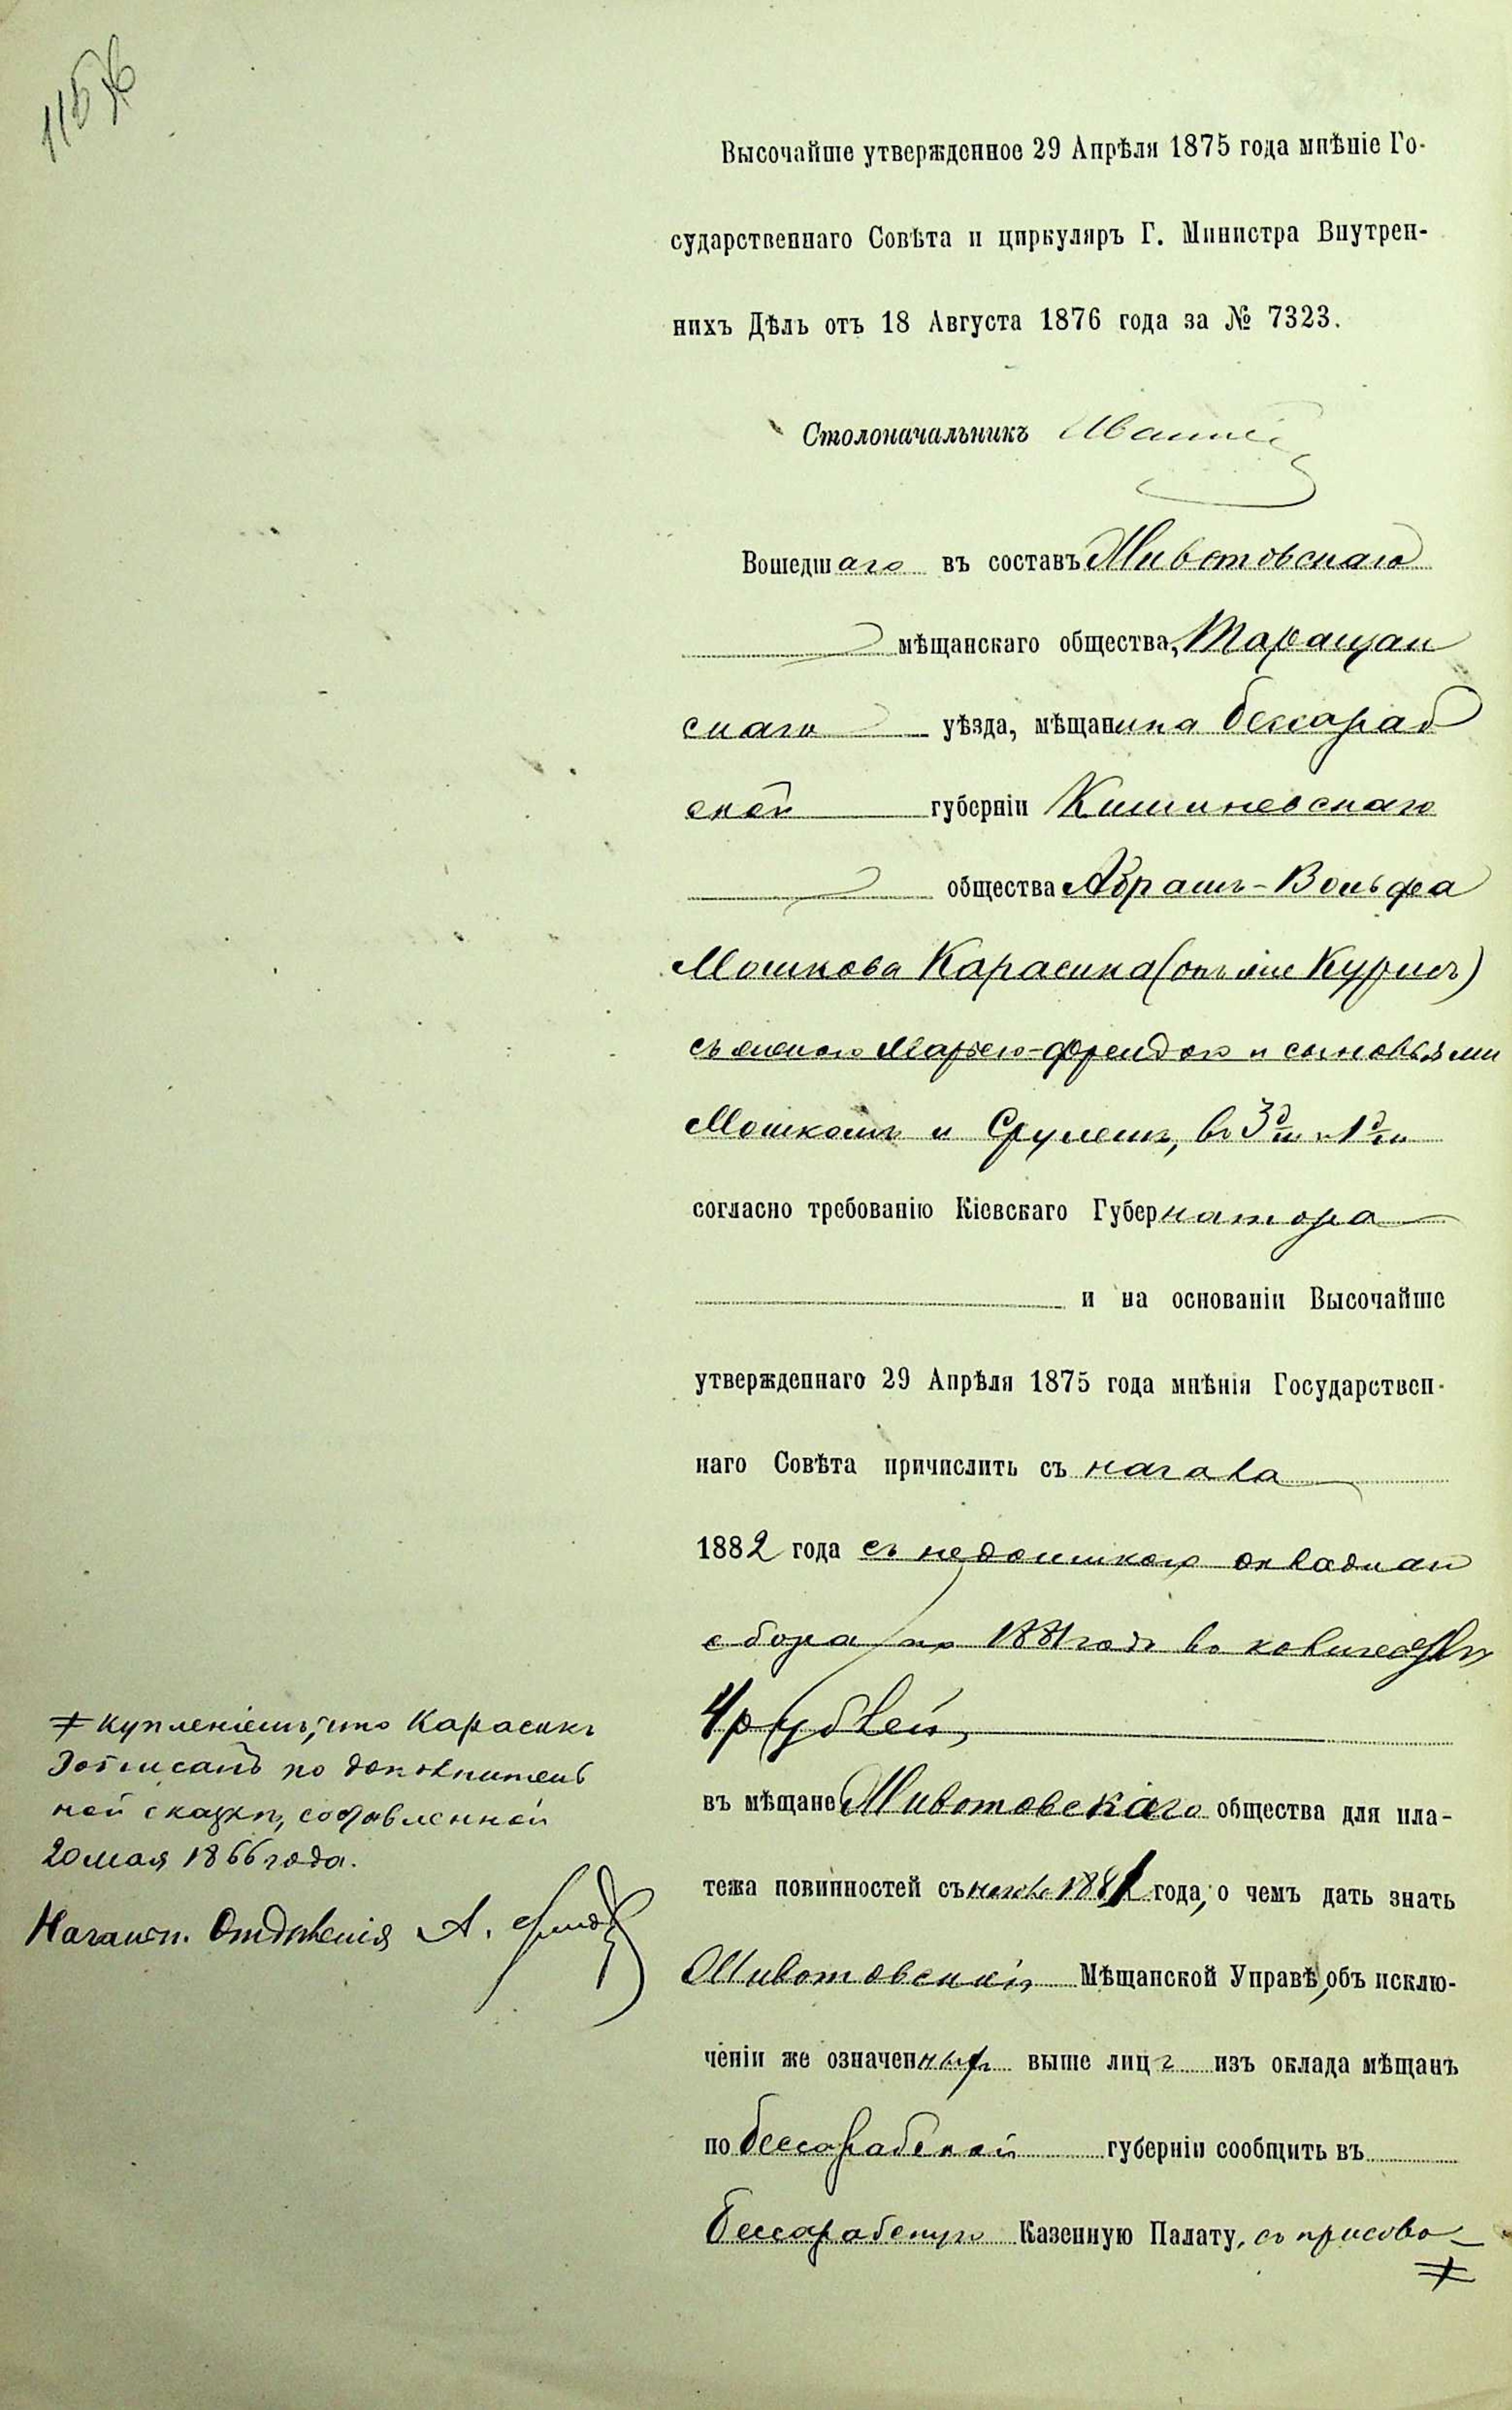 11576
Высочайше утвержденное 29 Апрѣля 1875 года мнѣніе Го-
сударственнаго Совѣта и циркуляръ Г. Министра Внутрен-
нихъ Дѣлъ отъ 18 Августа 1876 года за № 7323.
Столоначальникъ
Вошедшаго въ составъ Животовскаго
мѣщанскаго общества, Таращан
скаго уѣзда, мѣщанина Бессараб
ской губерніи Кишиневскаго
общества Абрамъ-Вольфа
Мошкова Карасика (онъ же Курисъ)
съ женою Марьею-Фрейдою и сыновьями
Мошкомъ и Срулемъ, въ 3д/ш и 1д/ш
согласно требованію Кіевскаго Губернатора
и на основаніи Высочайше
утвержденнаго 29 Апрѣля 1875 года мнѣнія Государствен-
наго Совѣта причислить съ начала
1882 года съ недоимкою окладнаго
сбора по 1881 годъ въ количествѣ
4 рублей,
въ мѣщане Животовскаго общества для пла-
тежа повинностей съ начала 1882 года, о чемъ дать знать
Животовской Мѣщанской Управѣ, объ исклю-
ченіи же означенныхъ выше лицъ изъ оклада мѣщанъ
по Бессарабской губерніи сообщить въ
Бессарабскую Казенную Палату, съ присово-
≠
≠ купленіемъ, что Карасикъ
записанъ по дополнитель
ной сказкѣ, составленной
20 мая 1866 года.
Начальн. Отдѣленія А.